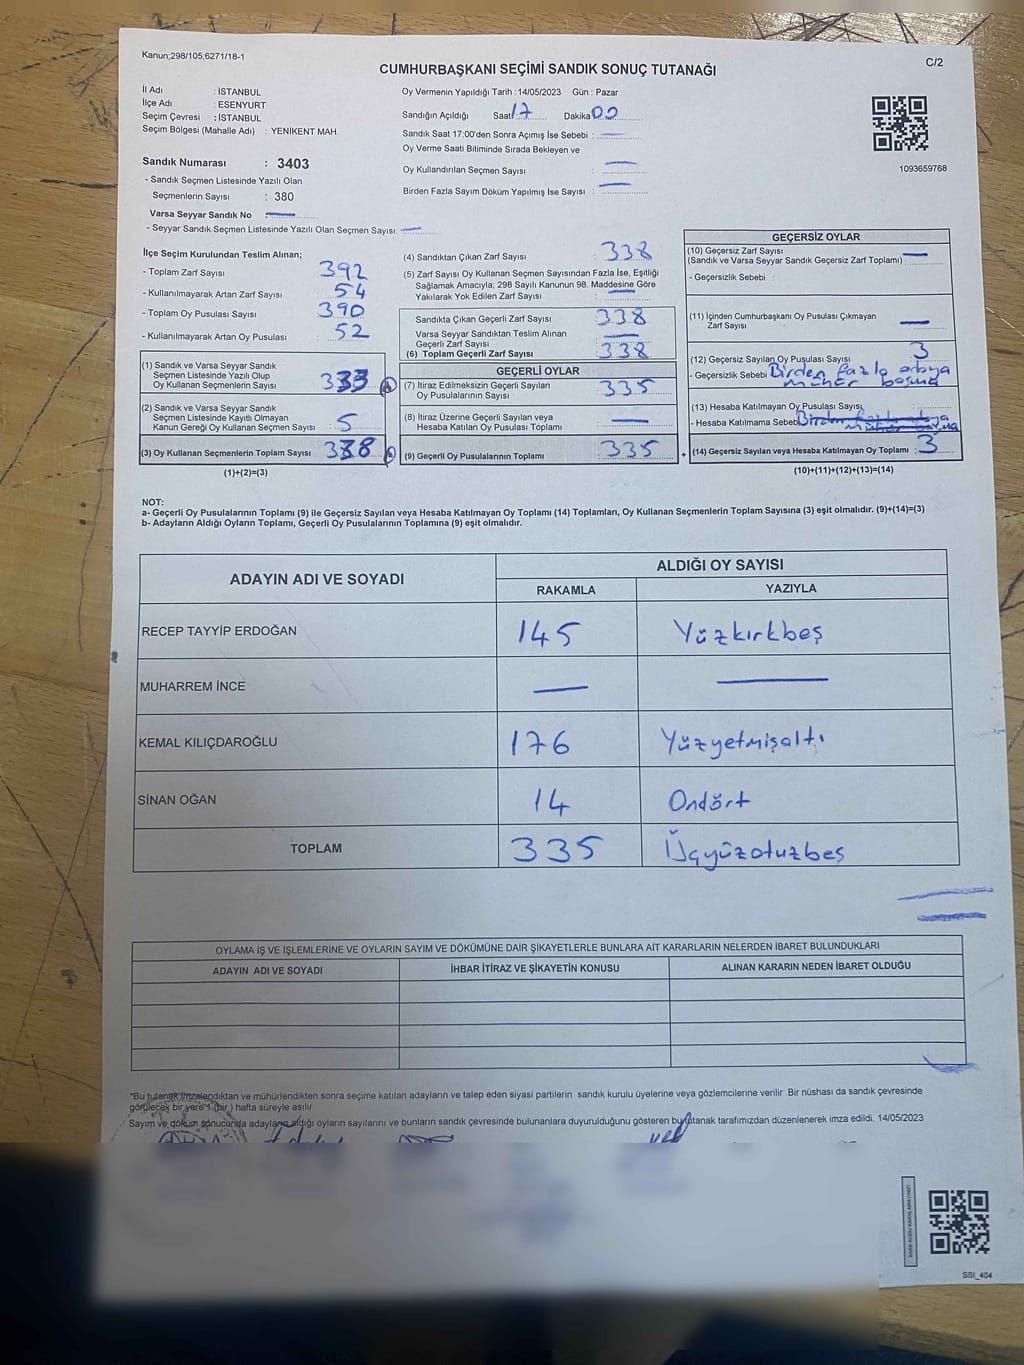 Kanun;298/105;6271/18-1
C/2
CUMHURBAŞKANI SEÇİMİ SANDIK SONUÇ TUTANAĞI
İl Adı : İSTANBUL
İlçe Adı : ESENYURT
Seçim Çevresi : İSTANBUL
Seçim Bölgesi (Mahalle Adı) : YENİKENT MAH.
Sandık Numarası : 3403
- Sandık Seçmen Listesinde Yazılı Olan
Seçmenlerin Sayısı : 380
Varsa Seyyar Sandık No : —
- Seyyar Sandık Seçmen Listesinde Yazılı Olan Seçmen Sayısı: —
Oy Vermenin Yapıldığı Tarih : 14/05/2023 Gün : Pazar
Sandığın Açıldığı Saat 17 Dakika 00
Sandık Saat 17:00'den Sonra Açımış İse Sebebi : —
Oy Verme Saati Bitiminde Sırada Bekleyen ve
Oy Kullandırılan Seçmen Sayısı : —
Birden Fazla Sayım Döküm Yapılmış İse Sayısı : —
1093659768
İlçe Seçim Kurulundan Teslim Alınan;
- Toplam Zarf Sayısı : 392
- Kullanılmayarak Artan Zarf Sayısı : 54
- Toplam Oy Pusulası Sayısı : 390
- Kullanılmayarak Artan Oy Pusulası : 52
(1) Sandık ve Varsa Seyyar Sandık
Seçmen Listesinde Yazılı Olup
Oy Kullanan Seçmenlerin Sayısı : 333
(2) Sandık ve Varsa Seyyar Sandık
Seçmen Listesinde Kayıtlı Olmayan
Kanun Gereği Oy Kullanan Seçmen Sayısı : 5
(3) Oy Kullanan Seçmenlerin Toplam Sayısı : 338
(1)+(2)=(3)
(4) Sandıktan Çıkan Zarf Sayısı : 338
(5) Zarf Sayısı Oy Kullanan Seçmen Sayısından Fazla İse, Eşitliği
Sağlamak Amacıyla; 298 Sayılı Kanunun 98. Maddesine Göre
Yakılarak Yok Edilen Zarf Sayısı : —
Sandıkta Çıkan Geçerli Zarf Sayısı : 338
Varsa Seyyar Sandıktan Teslim Alınan
Geçerli Zarf Sayısı : —
(6) Toplam Geçerli Zarf Sayısı : 338
GEÇERLİ OYLAR
(7) İtiraz Edilmeksizin Geçerli Sayılan
Oy Pusulalarının Sayısı : 335
(8) İtiraz Üzerine Geçerli Sayılan veya
Hesaba Katılan Oy Pusulası Toplamı : —
(9) Geçerli Oy Pusulalarının Toplamı : 335
+
GEÇERSİZ OYLAR
(10) Geçersiz Zarf Sayısı
(Sandık ve Varsa Seyyar Sandık Geçersiz Zarf Toplamı) : —
- Geçersizlik Sebebi :
(11) İçinden Cumhurbaşkanı Oy Pusulası Çıkmayan
Zarf Sayısı : —
(12) Geçersiz Sayılan Oy Pusulası Sayısı : 3
- Geçersizlik Sebebi : Birden fazla
mühür basma
(13) Hesaba Katılmayan Oy Pusulası Sayısı :
- Hesaba Katılmama Sebebi
(14) Geçersiz Sayılan veya Hesaba Katılmayan Oy Toplamı : 3
(10)+(11)+(12)+(13)=(14)
NOT:
a- Geçerli Oy Pusulalarının Toplamı (9) ile Geçersiz Sayılan veya Hesaba Katılmayan Oy Toplamı (14) Toplamları, Oy Kullanan Seçmenlerin Toplam Sayısına (3) eşit olmalıdır. (9)+(14)=(3)
b- Adayların Aldığı Oyların Toplamı, Geçerli Oy Pusulalarının Toplamına (9) eşit olmalıdır.
ADAYIN ADI VE SOYADI
ALDIĞI OY SAYISI
RAKAMLA YAZIYLA
RECEP TAYYİP ERDOĞAN 145 Yüzkırkbeş
MUHARREM İNCE — —
KEMAL KILIÇDAROĞLU 176 Yüzyetmişaltı
SİNAN OĞAN 14 Ondört
TOPLAM 335 Üçyüzotuzbeş
OYLAMA İŞ VE İŞLEMLERİNE VE OYLARIN SAYIM VE DÖKÜMÜNE DAİR ŞİKAYETLERLE BUNLARA AİT KARARLARIN NELERDEN İBARET BULUNDUKLARI
ADAYIN ADI VE SOYADI İHBAR İTİRAZ VE ŞİKAYETİN KONUSU ALINAN KARARIN NEDEN İBARET OLDUĞU
*Bu tutanak imzalandıktan ve mühürlendikten sonra seçime katılan adayların ve talep eden siyasi partilerin sandık kurulu üyelerine veya gözlemcilerine verilir. Bir nüshası da sandık çevresinde
görülecek bir yere 1 (bir ) hafta süreyle asılır
Sayım ve döküm sonucunda adayların aldığı oyların sayılarını ve bunların sandık çevresinde bulunanlara duyurulduğunu gösteren bu tutanak tarafımızdan düzenlenerek imza edildi. 14/05/2023
SSI_404